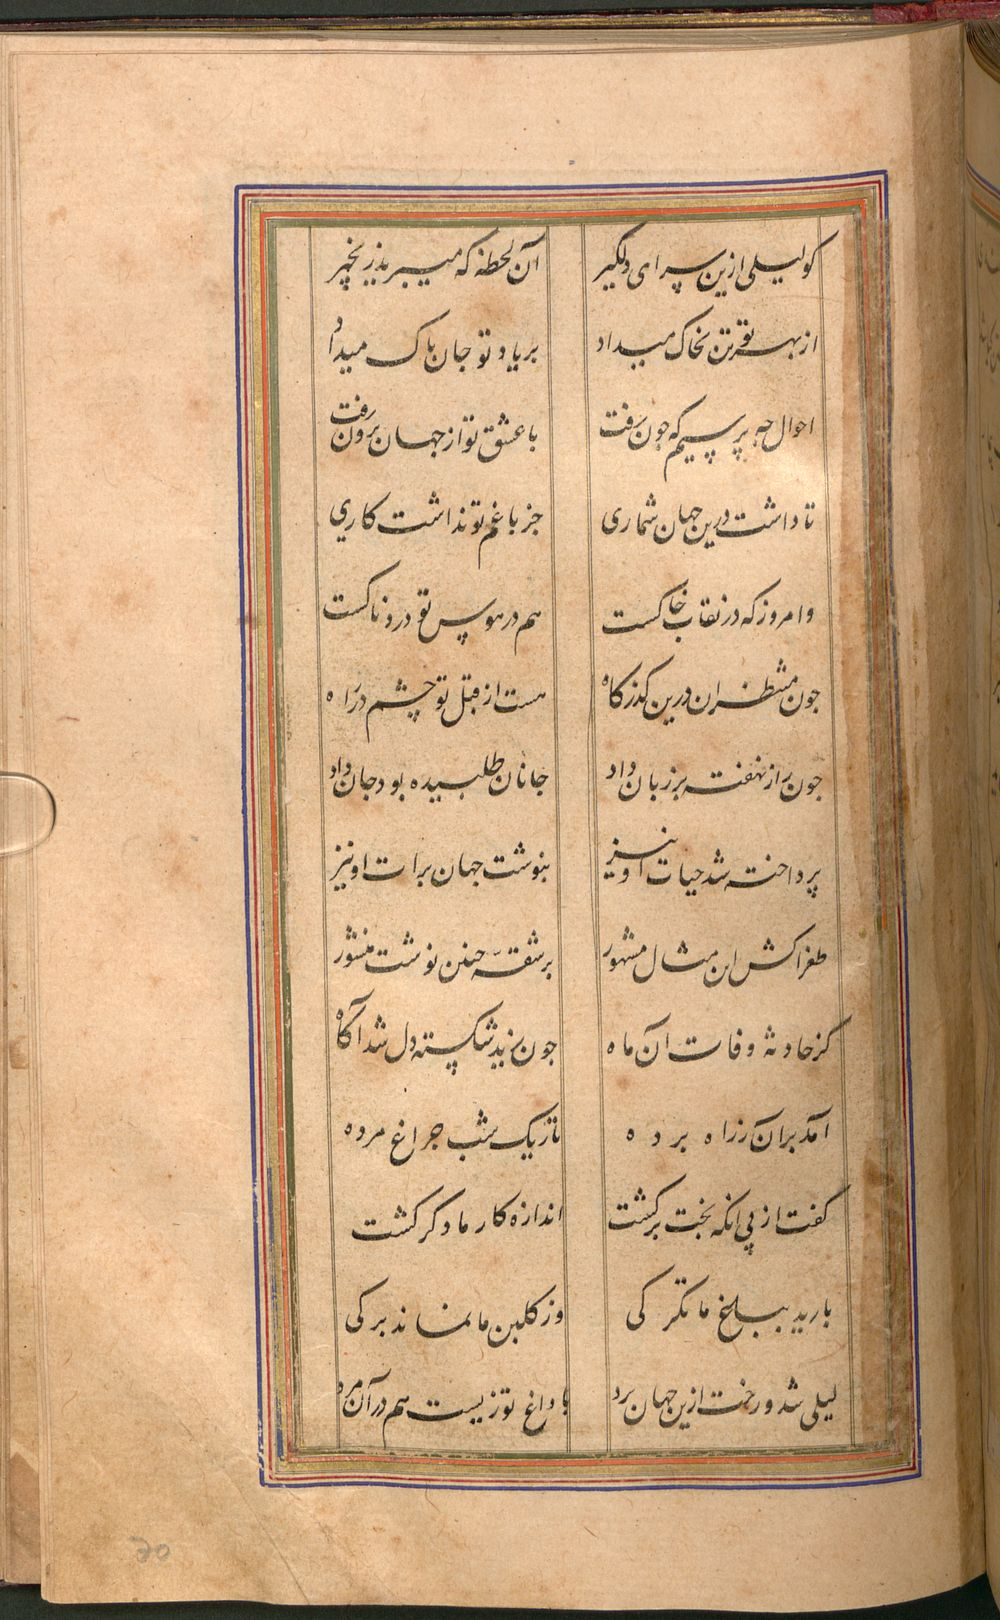 کو لیلی ازین سرای دلگیر
آن لحظه که میبرید زنجیر
از بهر تو تن بخاک میداد
بر یاد تو جان پاک میداد
احوال چه پرسیم که چون رفت
با عشق تو از جهان برون رفت
تا داشت درین جهان شماری
جز با غم تو نداشت کاری
وامروز که در نقاب خاکست
هم در هوس تو دردناکست
چون منتظران درین گذرگاه
هست از قبل تو چشم در راه
چون راز نهفته بر زبان داد
جانان طلبیده بود جان داد
پرداخته شد حیات او نیز
بنوشت جهان برات او نیز
طغراکش این مثال مشهور
بر شقه چنین نوشت منشور
کز حادثه وفات آن ماه
چون زید شکسته دل شد آگاه
آمد بر آن ز راه برده
تاریک شب چراغ مرده
گفت از پی آنکه بخت برگشت
اندازه کار ما دگر گشت
بارید بباغ ما تگرگی
وز گلبن ما نماند برگی
لیلی شد و رخت ازین جهان برد
با داغ تو زیست هم در آن مرد